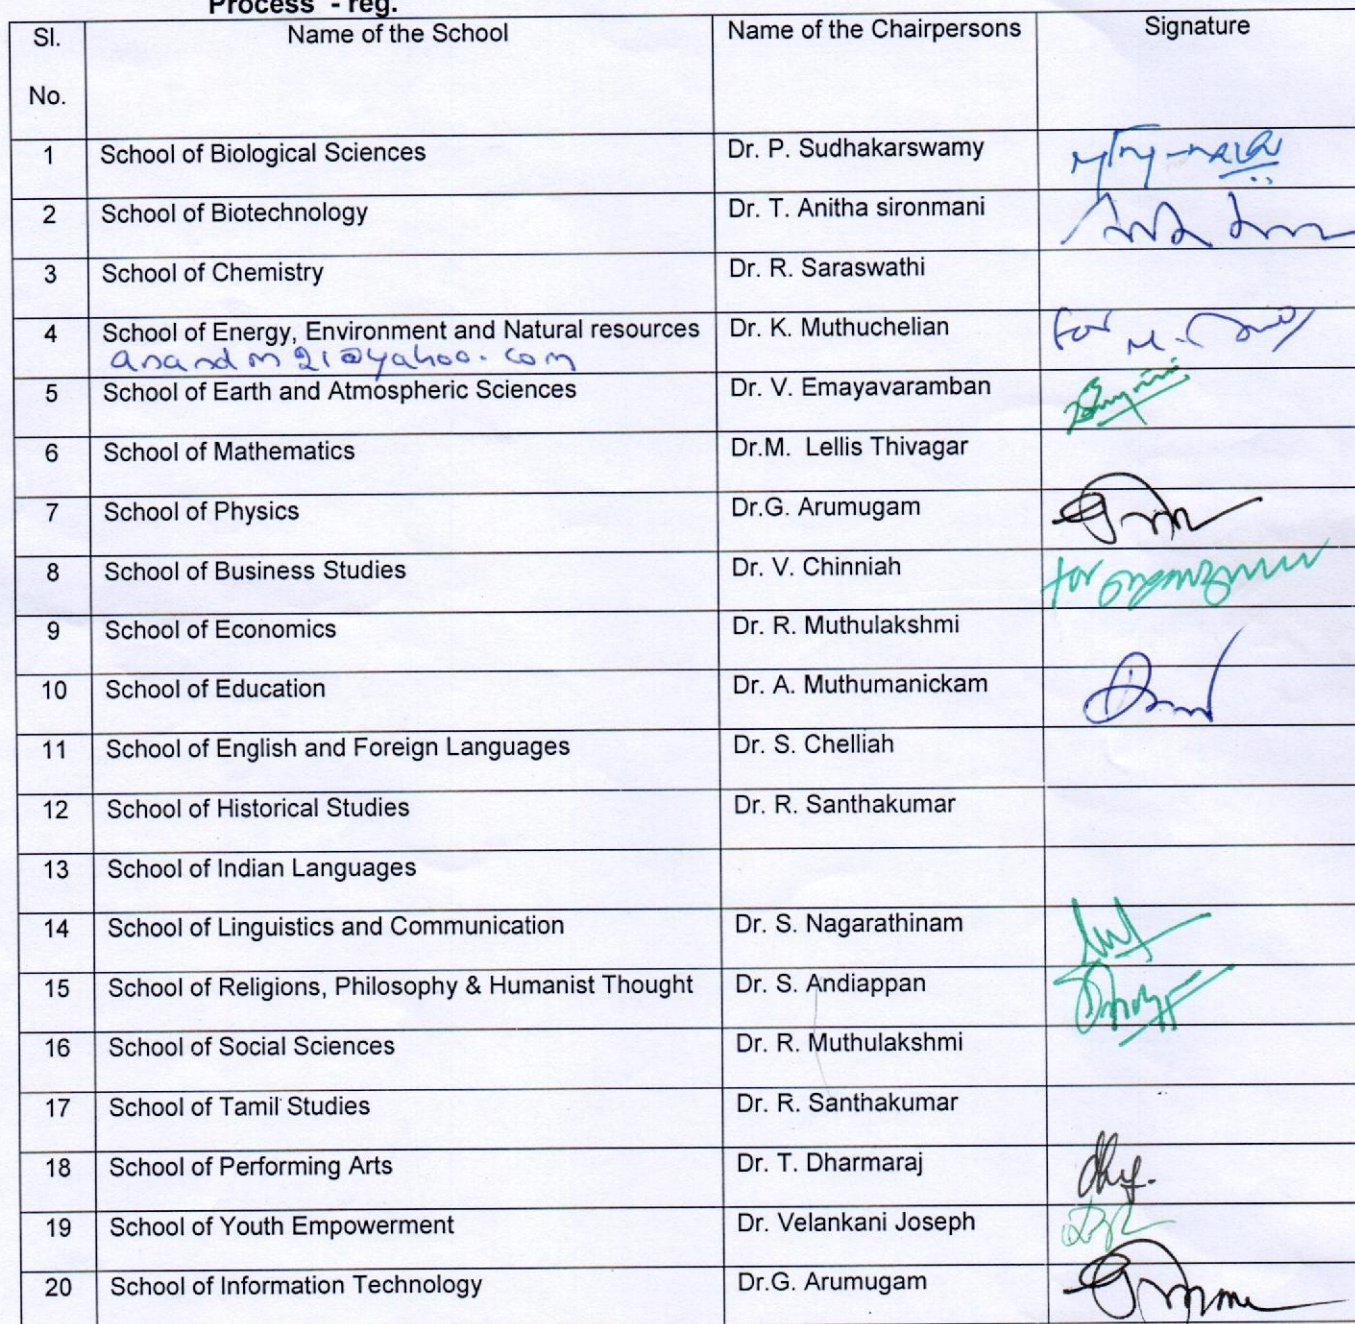 Process - reg.
Sl. No. Name of the School Name of the Chairpersons Signature
1 School of Biological Sciences Dr. P. Sudhakarswamy
2 School of Biotechnology Dr. T. Anitha sironmani
3 School of Chemistry Dr. R. Saraswathi
4 School of Energy, Environment and Natural resources Dr. K. Muthuchelian For
anandm21@yahoo.com
5 School of Earth and Atmospheric Sciences Dr. V. Emayavaramban
6 School of Mathematics Dr.M. Lellis Thivagar
7 School of Physics Dr.G. Arumugam
8 School of Business Studies Dr. V. Chinniah for
9 School of Economics Dr. R. Muthulakshmi
10 School of Education Dr. A. Muthumanickam
11 School of English and Foreign Languages Dr. S. Chelliah
12 School of Historical Studies Dr. R. Santhakumar
13 School of Indian Languages
14 School of Linguistics and Communication Dr. S. Nagarathinam
15 School of Religions, Philosophy & Humanist Thought Dr. S. Andiappan
16 School of Social Sciences Dr. R. Muthulakshmi
17 School of Tamil Studies Dr. R. Santhakumar
18 School of Performing Arts Dr. T. Dharmaraj
19 School of Youth Empowerment Dr. Velankani Joseph
20 School of Information Technology Dr.G. Arumugam